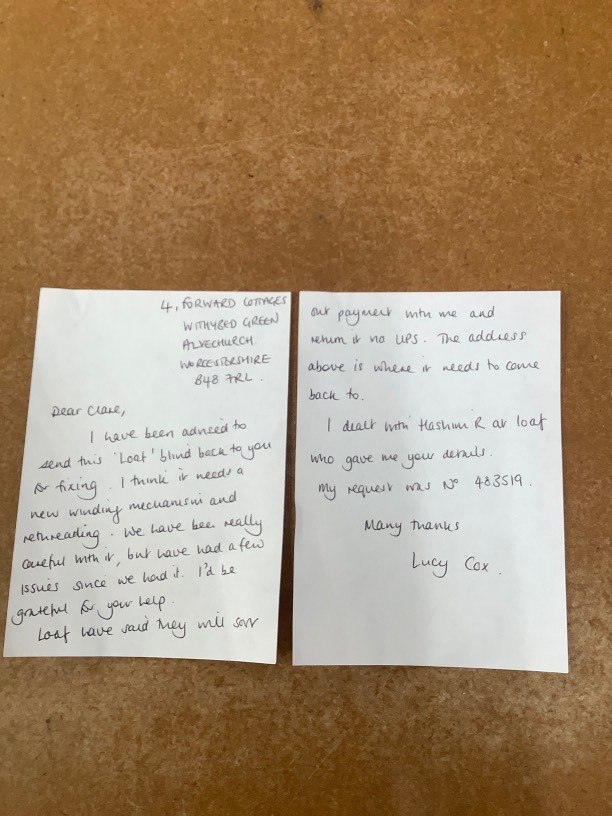 4, FORWARD COTTAGES
WITHYBED GREEN
ALVECHURCH
WORCESTERSHIRE
B48 7RL.
Dear Clare,
I have been advised to
send this 'Loaf' blind back to you
for fixing. I think it needs a
new winding mechanism and
rethreading. We have been really
careful with it, but have had a few
issues since we had it. I'd be
grateful for your help.
Loaf have said they will sort
out payment with me and
return it via UPS. The address
above is where it needs to come
back to.
I dealt with Hashim R at loaf
who gave me your details.
My request was No 483519.
Many thanks
Lucy Cox.